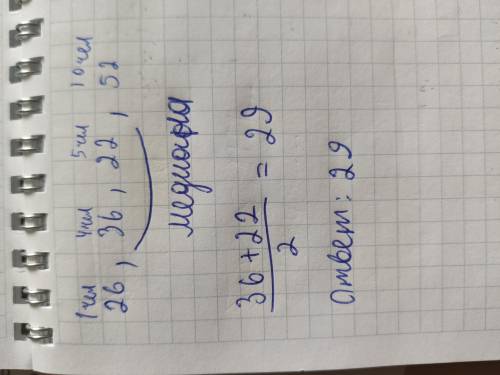 1 чел 4 чел 5 чел 10 чел
26, 36, 22, 52
медиана
36+22
2
= 29
Ответ: 29